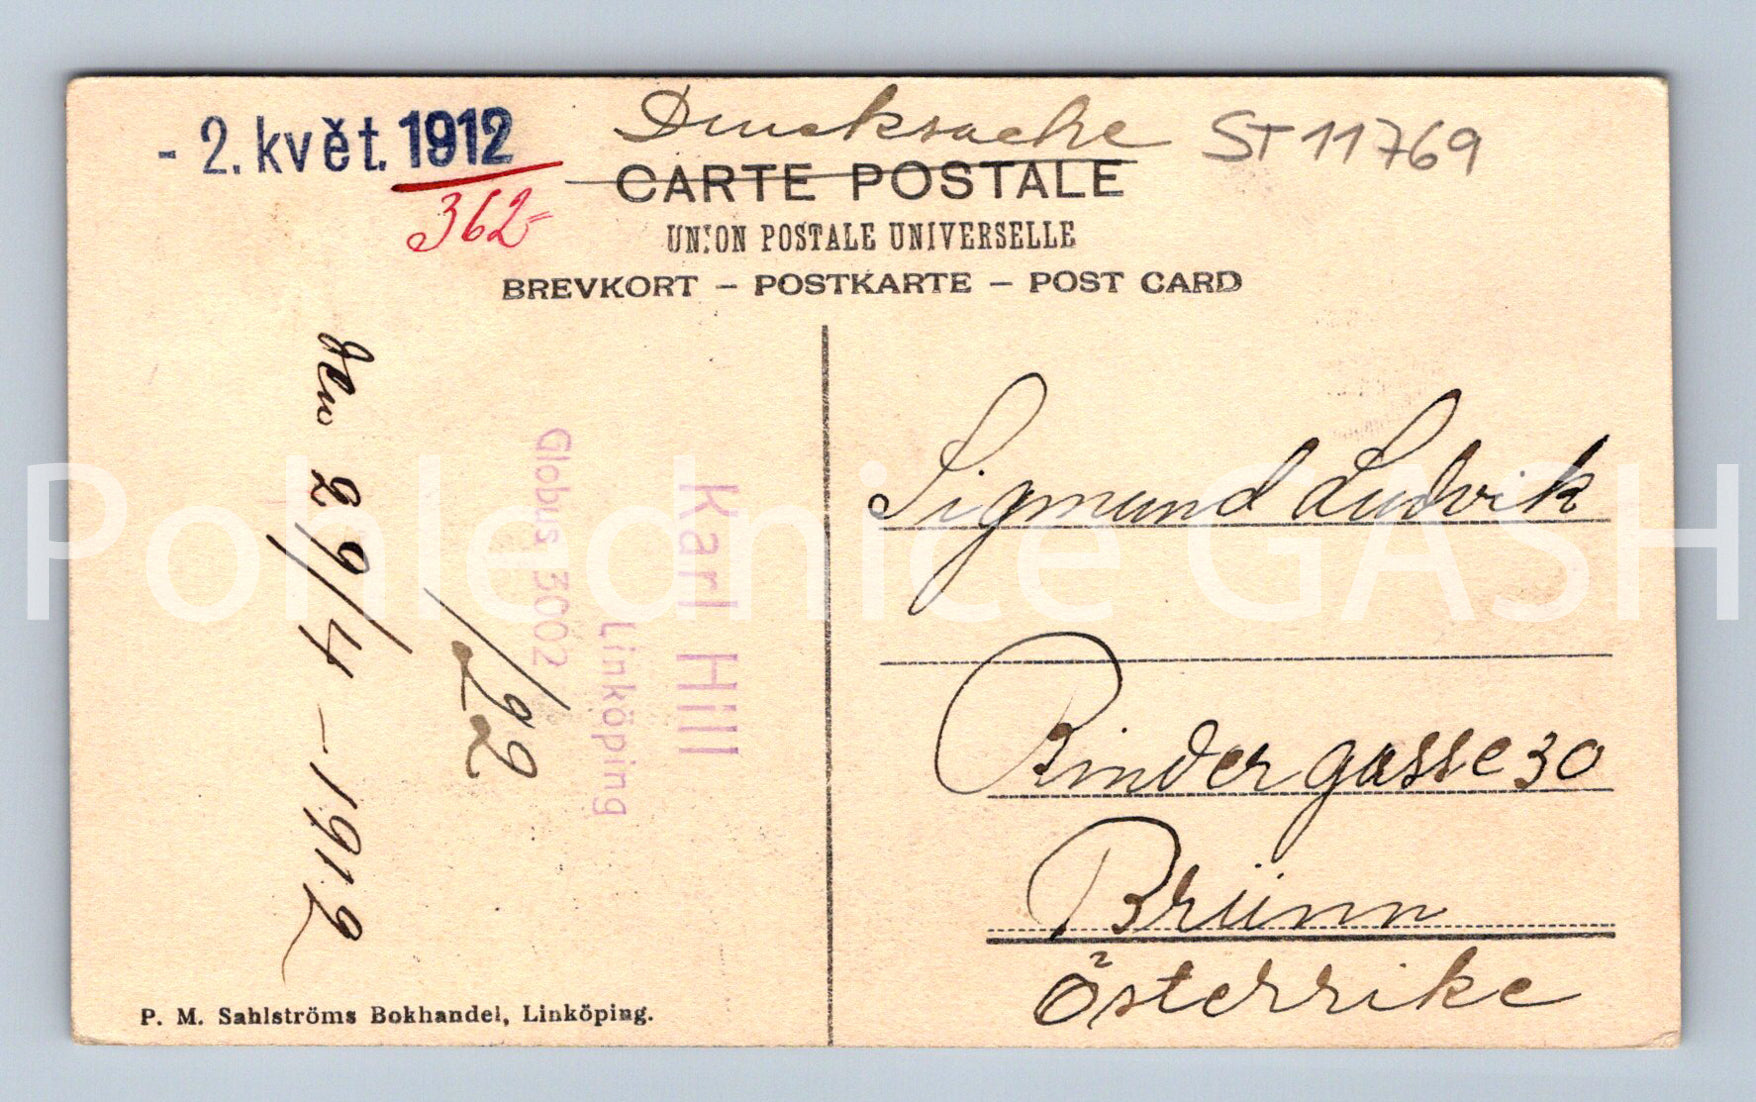 - 2. květ. 1912
362=
Drucksache
ST 11769
CARTE POSTALE
UNION POSTALE UNIVERSELLE
BREVKORT – POSTKARTE – POST CARD
Karl Hill
Linköping
Globus 3002
/22
/92
den 29/4 – 1912
Sigmund Ludvik
Rindergasse 30
Brünn
Österrike
P. M. Sahlströms Bokhandel, Linköping.
Pohlednice GASH